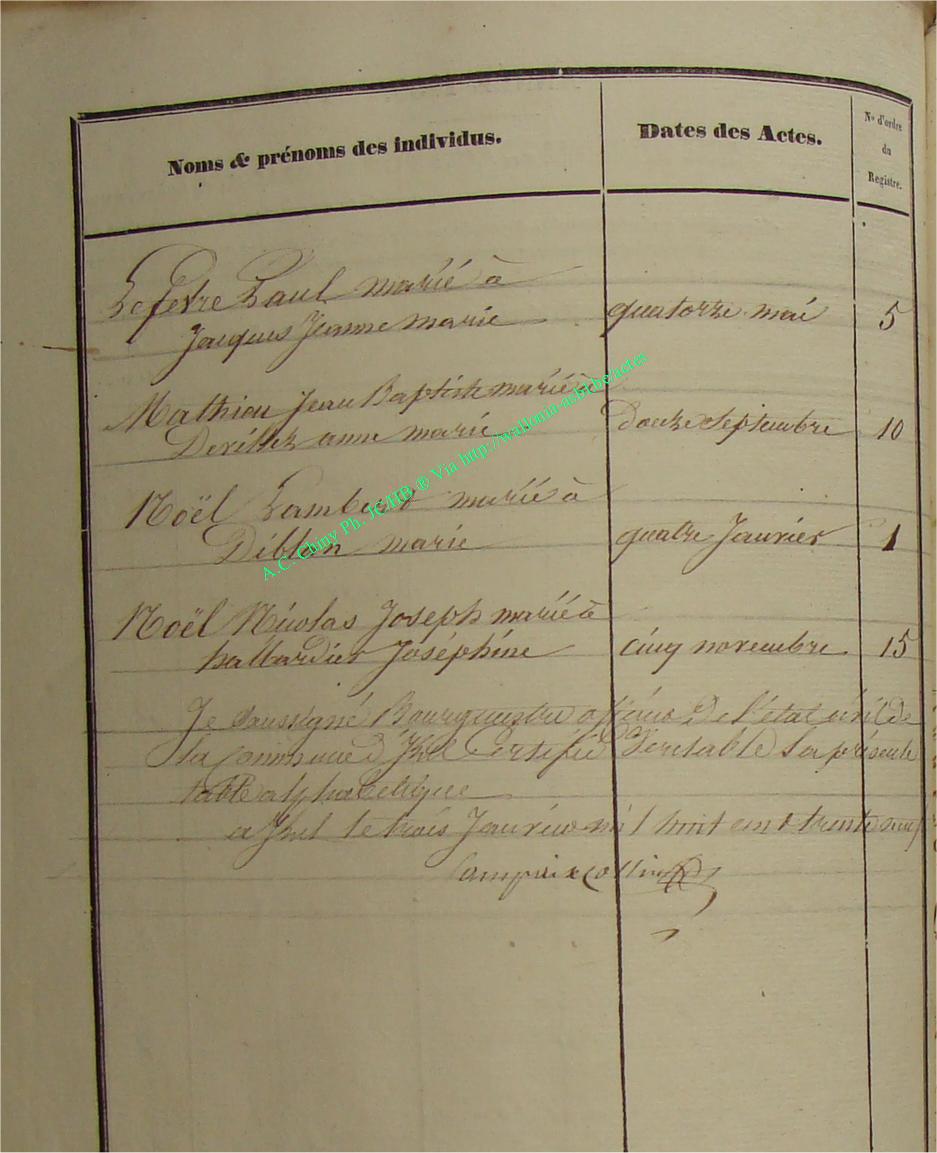 Noms & prénoms des individus.
Dates des Actes.
Nos d'ordre
du
Registre.
Lefevre Paul marié à
Jacques Jeanne marie quatorze mai 5
Mathieu Jean Baptiste marié à
anne marie Douze Septembre 10
Noël Lambert marié à
Diblon marie quatre Janvier 1
Noël Nicolas Joseph marié à
hallbardier Joséphine cinq novembre 15
Je soussigné Bourguestre officier De l'état civil de
la commune D'Izel Certifie Veritable la présente
table alphabetique
a Izel le trois Janvier mil huit cent trente neuf
A.C. Chiny Ph. JC/HB ® Via http://wallonia-asbl.be/actes